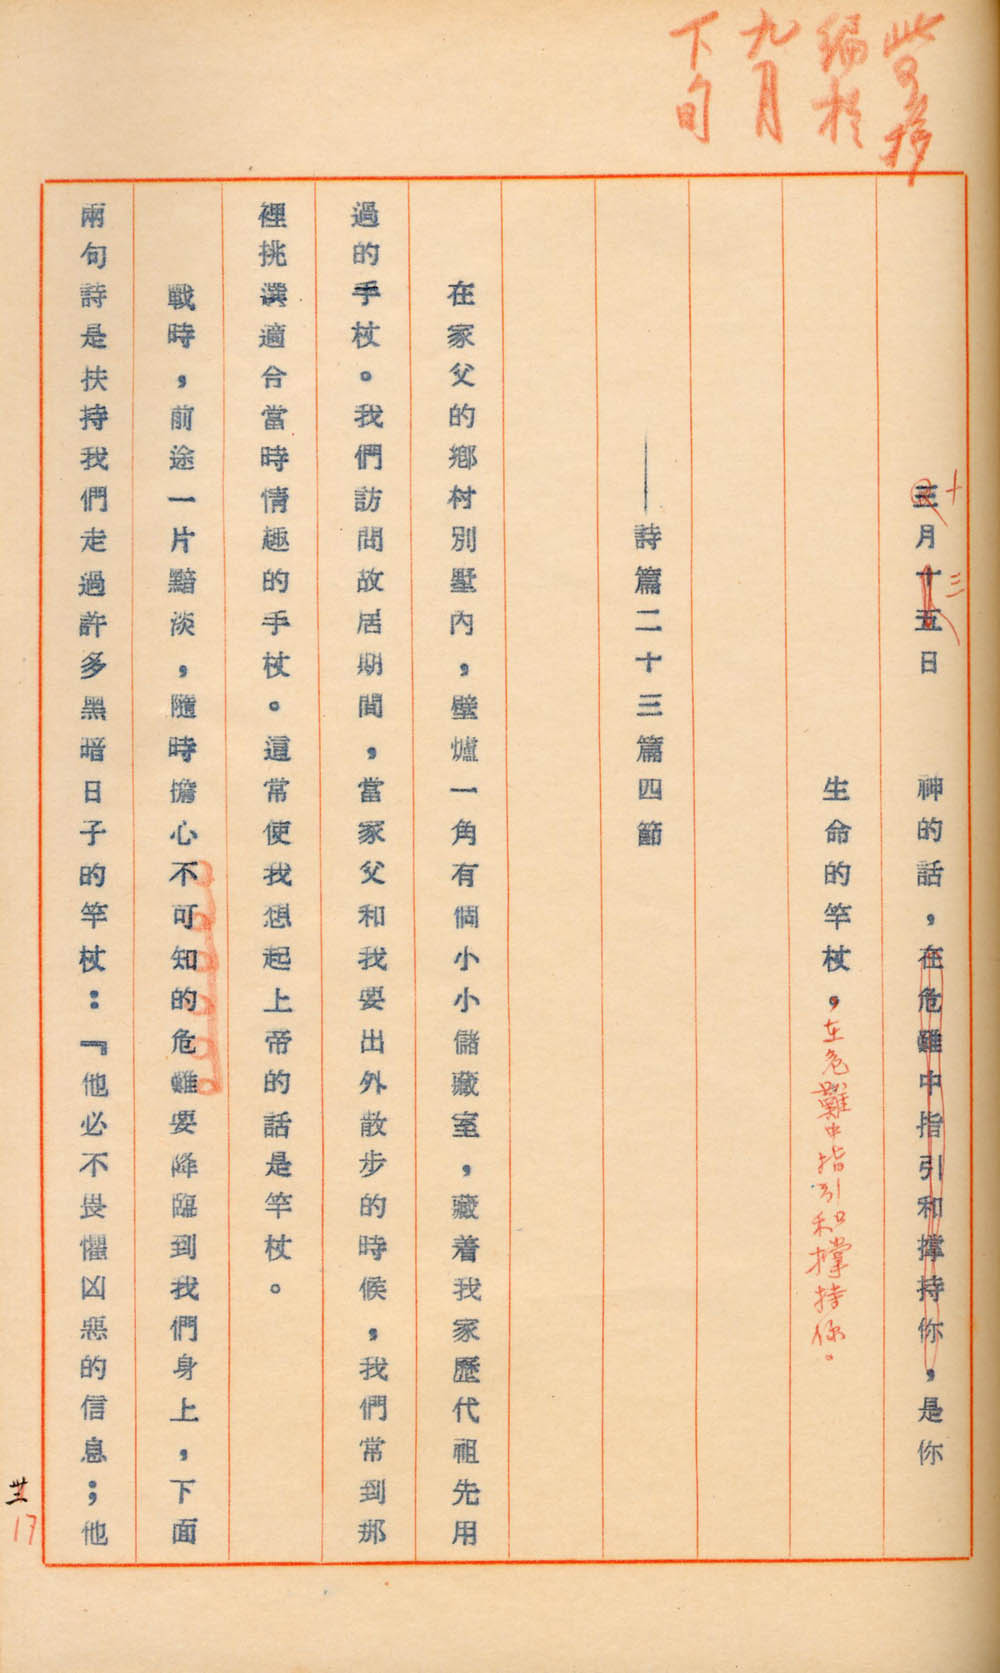 此可移
編於
九月
下旬
十 三
三月十五日 神的話，在危難中指引和撐持你，是你
生命的竿杖。在危難中指引和撐持你。
——詩篇二十三篇四節
在家父的鄉村別墅內，壁爐一角有個小小儲藏室，藏着我家歷代祖先用
過的手杖。我們訪問故居期間，當家父和我要出外散步的時候，我們常到那
裡挑選適合當時情趣的手杖。這常使我想起上帝的話是竿杖。
戰時，前途一片黯淡，隨時擔心不可知的危難要降臨到我們身上，下面
兩句詩是扶持我們走過許多黑暗日子的竿杖：『他必不畏懼凶惡的信息；他
17